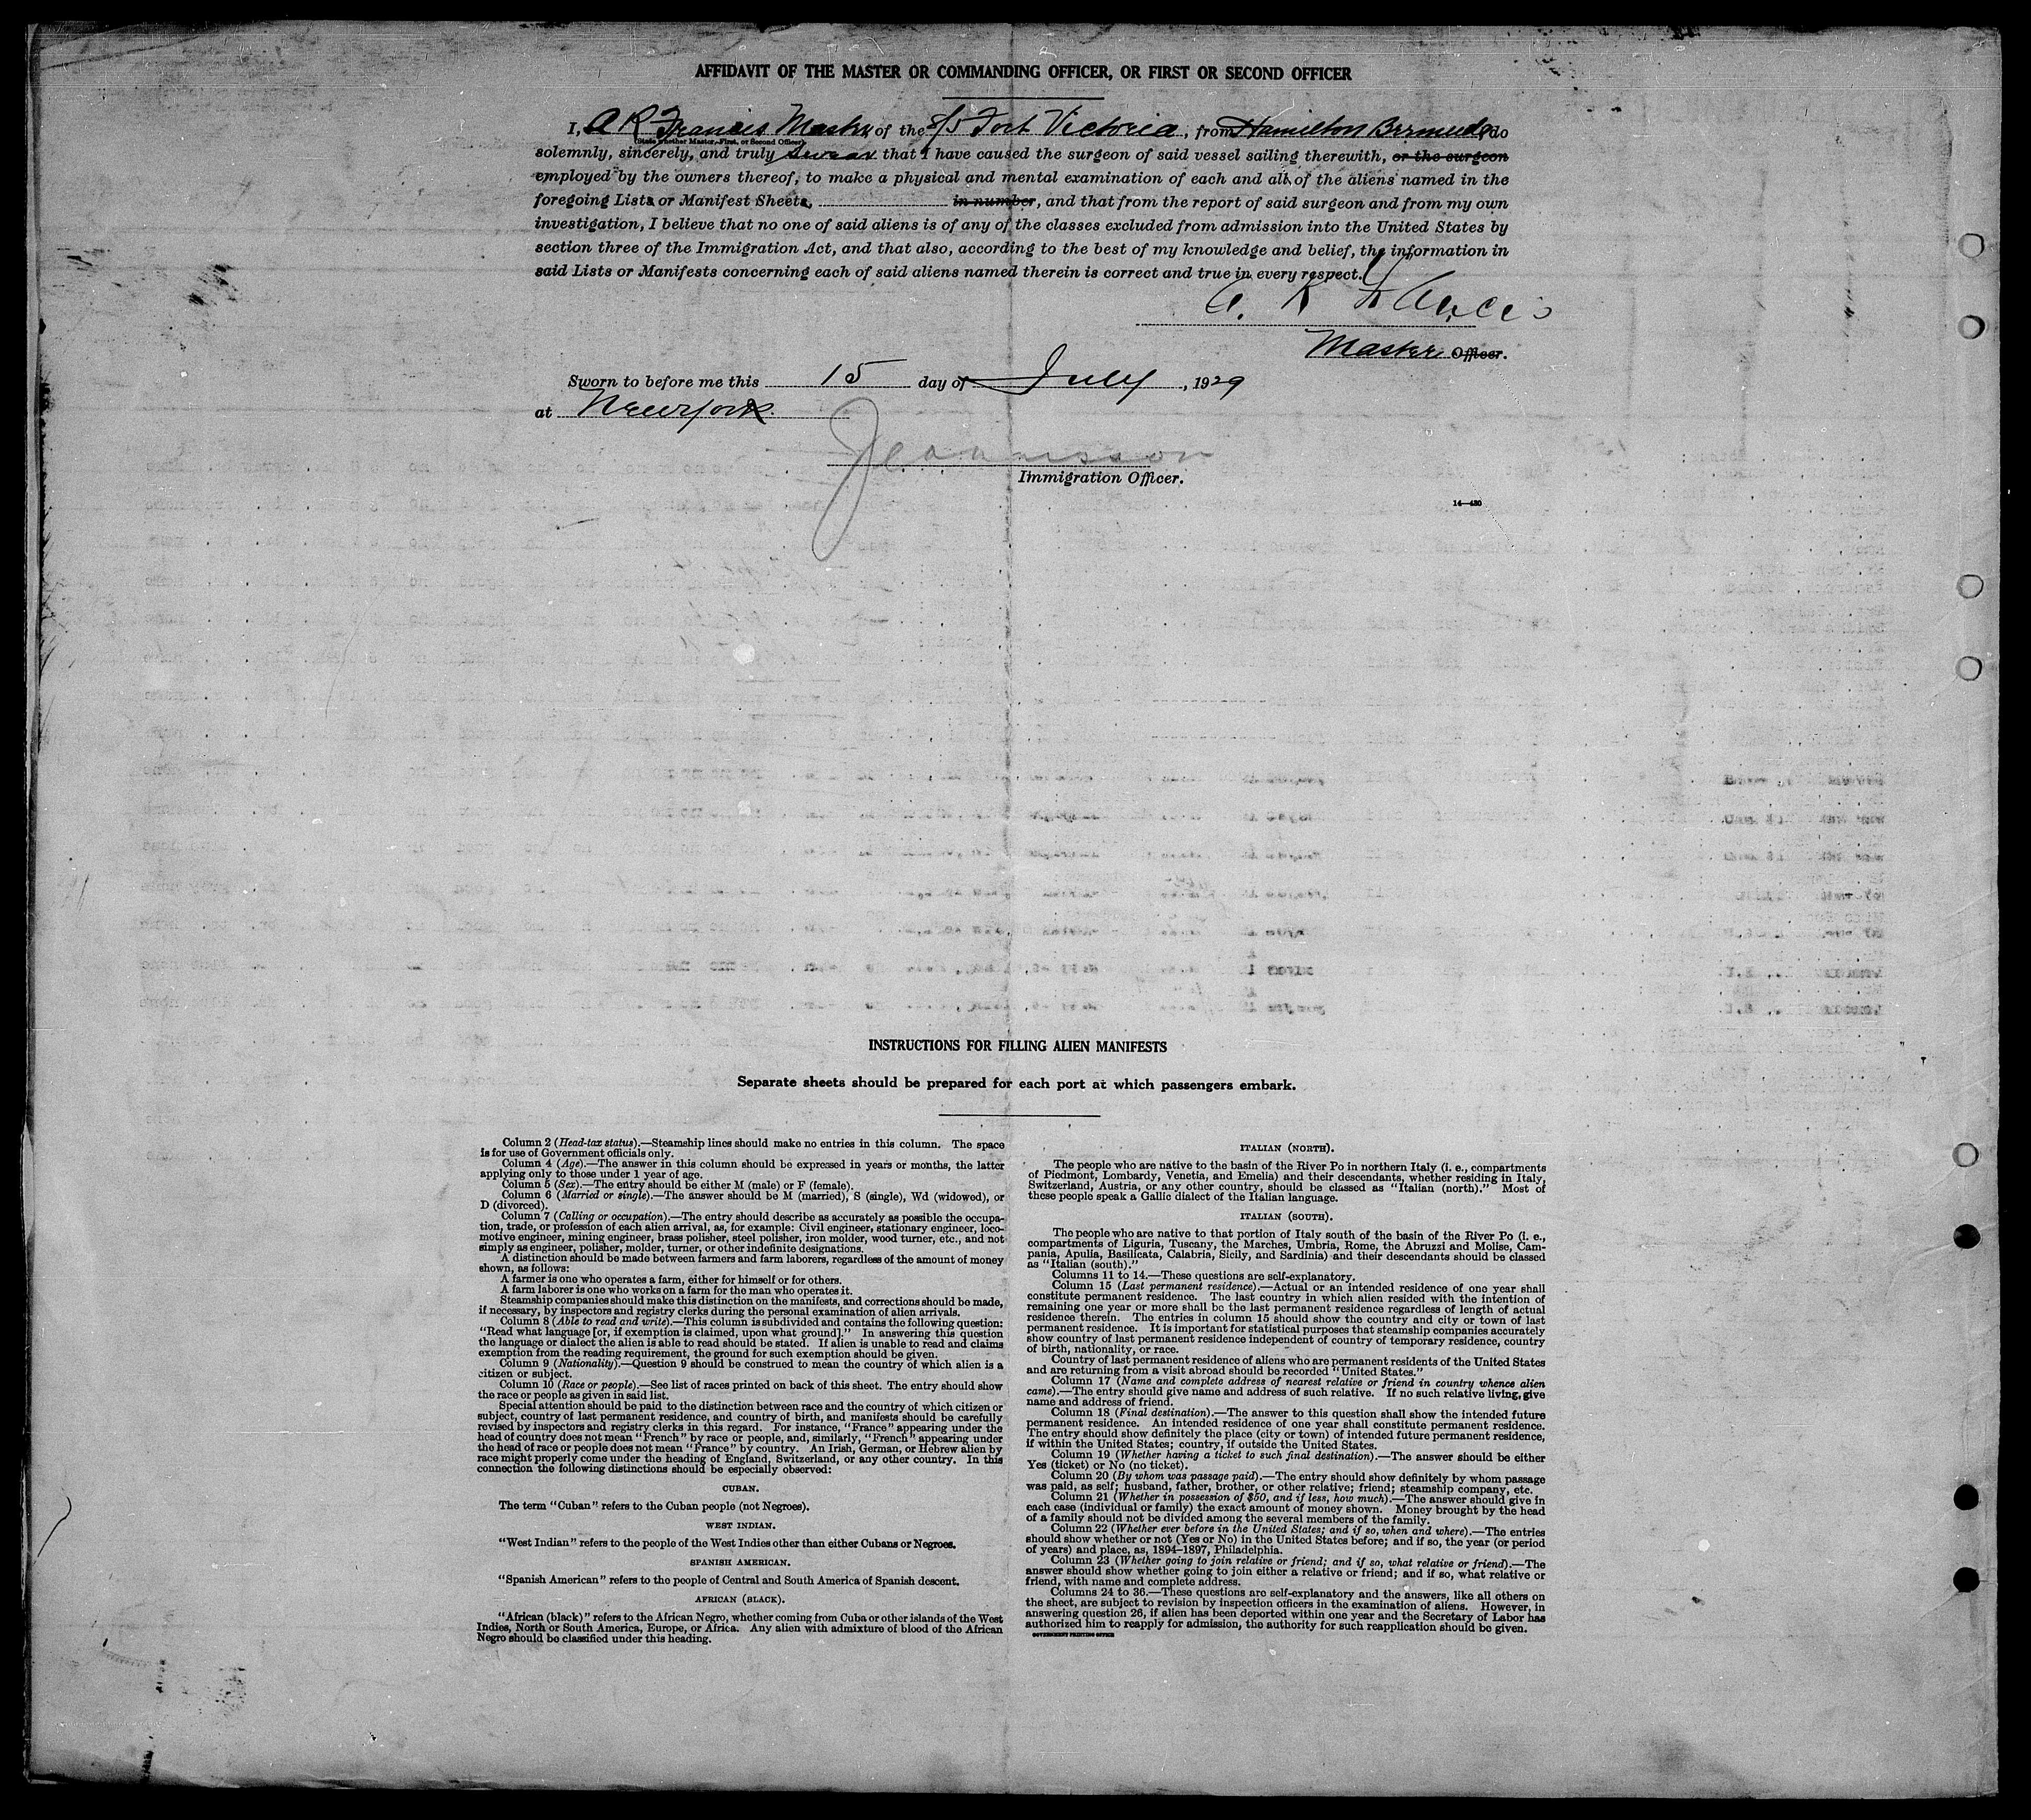 AFFIDAVIT OF THE MASTER OR COMMANDING OFFICER, OR FIRST OR SECOND OFFICER
I, A R Francis Master, of the S/S Fort Victoria, from Hamilton Bermuda, do
(State whether Master, First, or Second Officer)
solemnly, sincerely, and truly swear that I have caused the surgeon of said vessel sailing therewith, or the surgeon
employed by the owners thereof, to make a physical and mental examination of each and all of the aliens named in the
foregoing Lists or Manifest Sheets, in number, and that from the report of said surgeon and from my own
investigation, I believe that no one of said aliens is of any of the classes excluded from admission into the United States by
section three of the Immigration Act, and that also, according to the best of my knowledge and belief, the information in
said Lists or Manifests concerning each of said aliens named therein is correct and true in every respect.
A. R Francis
Master Officer.
Sworn to before me this 15 day of July, 1929
at New York.
Immigration Officer.
14—430
INSTRUCTIONS FOR FILLING ALIEN MANIFESTS
Separate sheets should be prepared for each port at which passengers embark.
Column 2 (Head-tax status).—Steamship lines should make no entries in this column. The space
is for use of Government officials only.
Column 4 (Age).—The answer in this column should be expressed in years or months, the latter
applying only to those under 1 year of age.
Column 5 (Sex).—The entry should be either M (male) or F (female).
Column 6 (Married or single).—The answer should be M (married), S (single), Wd (widowed), or
D (divorced).
Column 7 (Calling or occupation).—The entry should describe as accurately as possible the occupa-
tion, trade, or profession of each alien arrival, as, for example: Civil engineer, stationary engineer, loco-
motive engineer, mining engineer, brass polisher, steel polisher, iron molder, wood turner, etc., and not
simply as engineer, polisher, molder, turner, or other indefinite designations.
A distinction should be made between farmers and farm laborers, regardless of the amount of money
shown, as follows:
A farmer is one who operates a farm, either for himself or for others.
A farm laborer is one who works on a farm for the man who operates it.
Steamship companies should make this distinction on the manifests, and corrections should be made,
if necessary, by inspectors and registry clerks during the personal examination of alien arrivals.
Column 8 (Able to read and write).—This column is subdivided and contains the following question:
"Read what language [or, if exemption is claimed, upon what ground]." In answering this question
the language or dialect the alien is able to read should be stated. If alien is unable to read and claims
exemption from the reading requirement, the ground for such exemption should be given.
Column 9 (Nationality).—Question 9 should be construed to mean the country of which alien is a
citizen or subject.
Column 10 (Race or people).—See list of races printed on back of this sheet. The entry should show
the race or people as given in said list.
Special attention should be paid to the distinction between race and the country of which citizen or
subject, country of last permanent residence, and country of birth, and manifests should be carefully
revised by inspectors and registry clerks in this regard. For instance, "France" appearing under the
head of country does not mean "French" by race or people, and, similarly, "French" appearing under
the head of race or people does not mean "France" by country. An Irish, German, or Hebrew alien by
race might properly come under the heading of England, Switzerland, or any other country. In this
connection the following distinctions should be especially observed:
CUBAN.
The term "Cuban" refers to the Cuban people (not Negroes).
WEST INDIAN.
"West Indian" refers to the people of the West Indies other than either Cubans or Negroes.
SPANISH AMERICAN.
"Spanish American" refers to the people of Central and South America of Spanish descent.
AFRICAN (BLACK).
"African (black)" refers to the African Negro, whether coming from Cuba or other islands of the West
Indies, North or South America, Europe, or Africa. Any alien with admixture of blood of the African
Negro should be classified under this heading.
ITALIAN (NORTH).
The people who are native to the basin of the River Po in northern Italy (i. e., compartments
of Piedmont, Lombardy, Venetia, and Emelia) and their descendants, whether residing in Italy,
Switzerland, Austria, or any other country, should be classed as "Italian (north)." Most of
these people speak a Gallic dialect of the Italian language.
ITALIAN (SOUTH).
The people who are native to that portion of Italy south of the basin of the River Po (i. e.,
compartments of Liguria, Tuscany, the Marches, Umbria, Rome, the Abruzzi and Molise, Cam-
pania, Apulia, Basilicata, Calabria, Sicily, and Sardinia) and their descendants should be classed
as "Italian (south)."
Columns 11 to 14.—These questions are self-explanatory.
Column 15 (Last permanent residence).—Actual or an intended residence of one year shall
constitute permanent residence. The last country in which alien resided with the intention of
remaining one year or more shall be the last permanent residence regardless of length of actual
residence therein. The entries in column 15 should show the country and city or town of last
permanent residence. It is important for statistical purposes that steamship companies accurately
show country of last permanent residence independent of country of temporary residence, country
of birth, nationality, or race.
Country of last permanent residence of aliens who are permanent residents of the United States
and are returning from a visit abroad should be recorded "United States."
Column 17 (Name and complete address of nearest relative or friend in country whence alien
came).—The entry should give name and address of such relative. If no such relative living, give
name and address of friend.
Column 18 (Final destination).—The answer to this question shall show the intended future
permanent residence. An intended residence of one year shall constitute permanent residence.
The entry should show definitely the place (city or town) of intended future permanent residence,
if within the United States; country, if outside the United States.
Column 19 (Whether having a ticket to such final destination).—The answer should be either
Yes (ticket) or No (no ticket).
Column 20 (By whom was passage paid).—The entry should show definitely by whom passage
was paid, as self; husband, father, brother, or other relative; friend; steamship company, etc.
Column 21 (Whether in possession of $50, and if less, how much).—The answer should give in
each case (individual or family) the exact amount of money shown. Money brought by the head
of a family should not be divided among the several members of the family.
Column 22 (Whether ever before in the United States; and if so, when and where).—The entries
should show whether or not (Yes or No) in the United States before; and if so, the year (or period
of years) and place, as, 1894–1897, Philadelphia.
Column 23 (Whether going to join relative or friend; and if so, what relative or friend).—The
answer should show whether going to join either a relative or friend; and if so, what relative or
friend, with name and complete address.
Columns 24 to 36.—These questions are self-explanatory and the answers, like all others on
the sheet, are subject to revision by inspection officers in the examination of aliens. However, in
answering question 26, if alien has been deported within one year and the Secretary of Labor has
authorized him to reapply for admission, the authority for such reapplication should be given.
GOVERNMENT PRINTING OFFICE